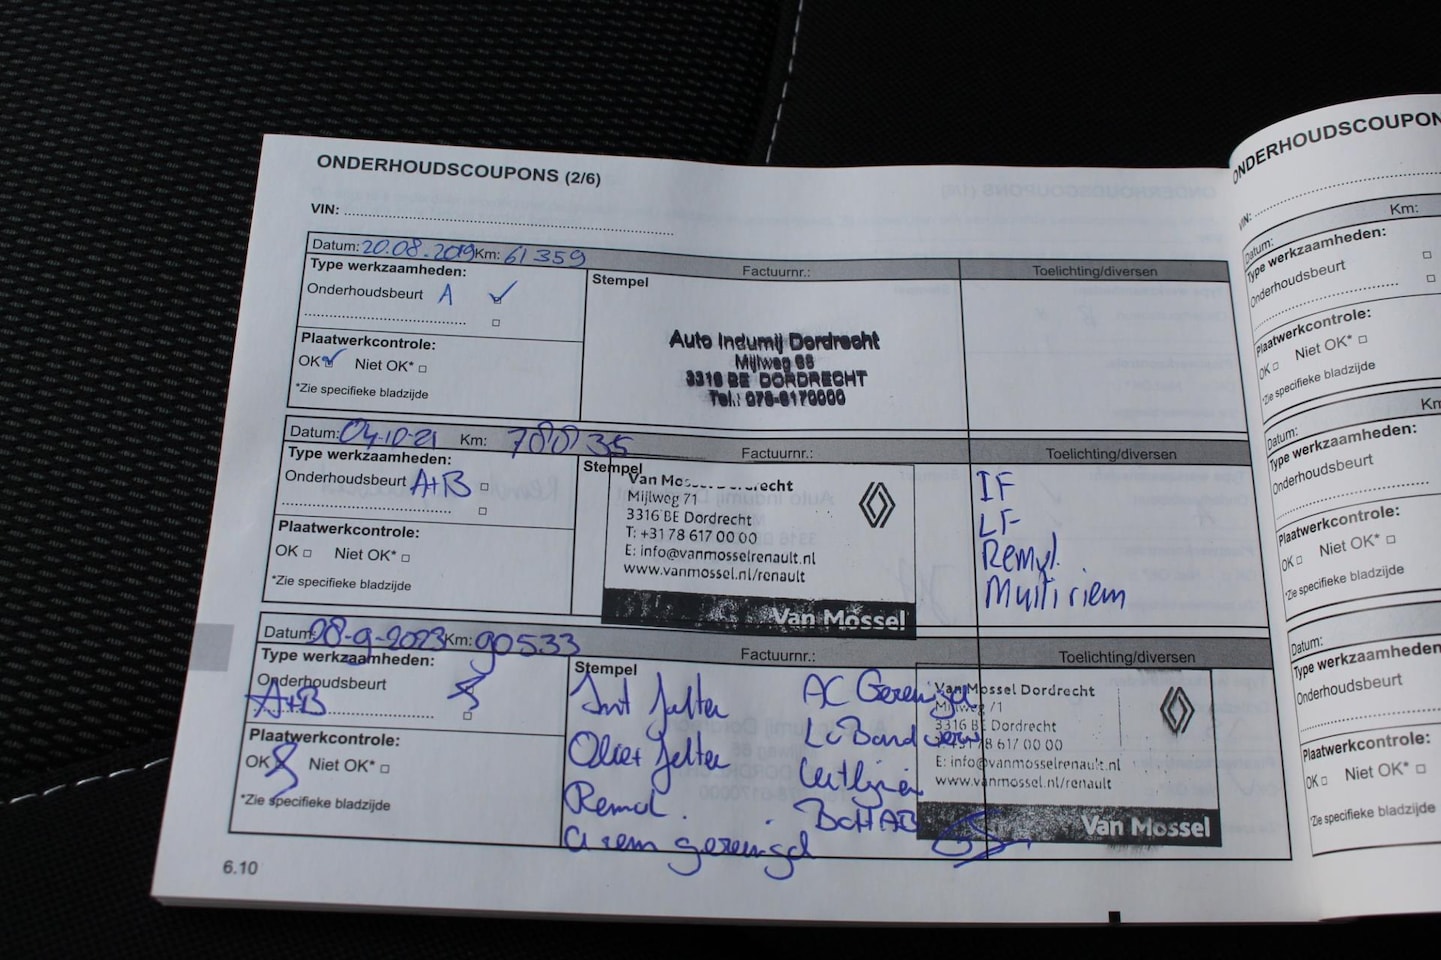 ONDERHOUDSCOUPONS (2/6)
VIN:
Datum: 20.08.2019 Km: 61359
Factuurnr.:
Toelichting/diversen
Type werkzaamheden:
Onderhoudsbeurt A
Stempel
Auto Indumij Dordrecht
Mijlweg
3316 BE DORDRECHT
Tel.: 078-6170000
Plaatwerkcontrole:
OK Niet OK*
*Zie specifieke bladzijde
Datum: 04-10-21 Km:
Factuurnr.:
Toelichting/diversen
Type werkzaamheden:
Onderhoudsbeurt A+B
Stempel
Mijlweg 71
3316 BE Dordrecht
T: +31 78 617 00 00
E: info@vanmosselrenault.nl
www.vanmossel.nl/renault
Van Mossel
IF
LF
Multiriem
Plaatwerkcontrole:
OK Niet OK*
*Zie specifieke bladzijde
Datum: 28-9-2023 Km: 90533
Factuurnr.:
Toelichting/diversen
Type werkzaamheden:
Onderhoudsbeurt
A+B
Stempel
Van Mossel Dordrecht
3316 BE Dordrecht
E: info@vanmosselrenault.nl
www.vanmossel.nl/renault
Van Mossel
AC Gereinigd
Plaatwerkcontrole:
OK Niet OK*
*Zie specifieke bladzijde
6.10
VIN:
Km:
Datum:
Type werkzaamheden:
Onderhoudsbeurt
Plaatwerkcontrole:
OK Niet OK*
*Zie specifieke bladzijde
Datum:
Type werkzaamheden:
Onderhoudsbeurt
Plaatwerkcontrole:
OK Niet OK*
*Zie specifieke bladzijde
Datum:
Type werkzaamheden:
Onderhoudsbeurt
Plaatwerkcontrole:
OK Niet OK*
*Zie specifieke bladzijde